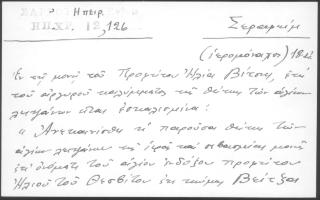 Ηπειρ.
ΗΠ.ΧΡ. 12, 126
Σεραφείμ
(ιερομόναχος) 18
Εν τη μονή του Προφήτου Ηλία Βίτσης, επί
του αργυρού καλύμματος της θήκης των αγίων
λειψάνων είναι εγκεχαραγμένα:
"Ανεκαινίσθη η παρούσα θήκη των
αγίων λειψάνων της ιεράς και σεβασμίας μονής
επ' ονόματι του αγίου ενδόξου προφήτου
Ηλιού του Θεσβίτου εκ κώμης Βεΐτζας